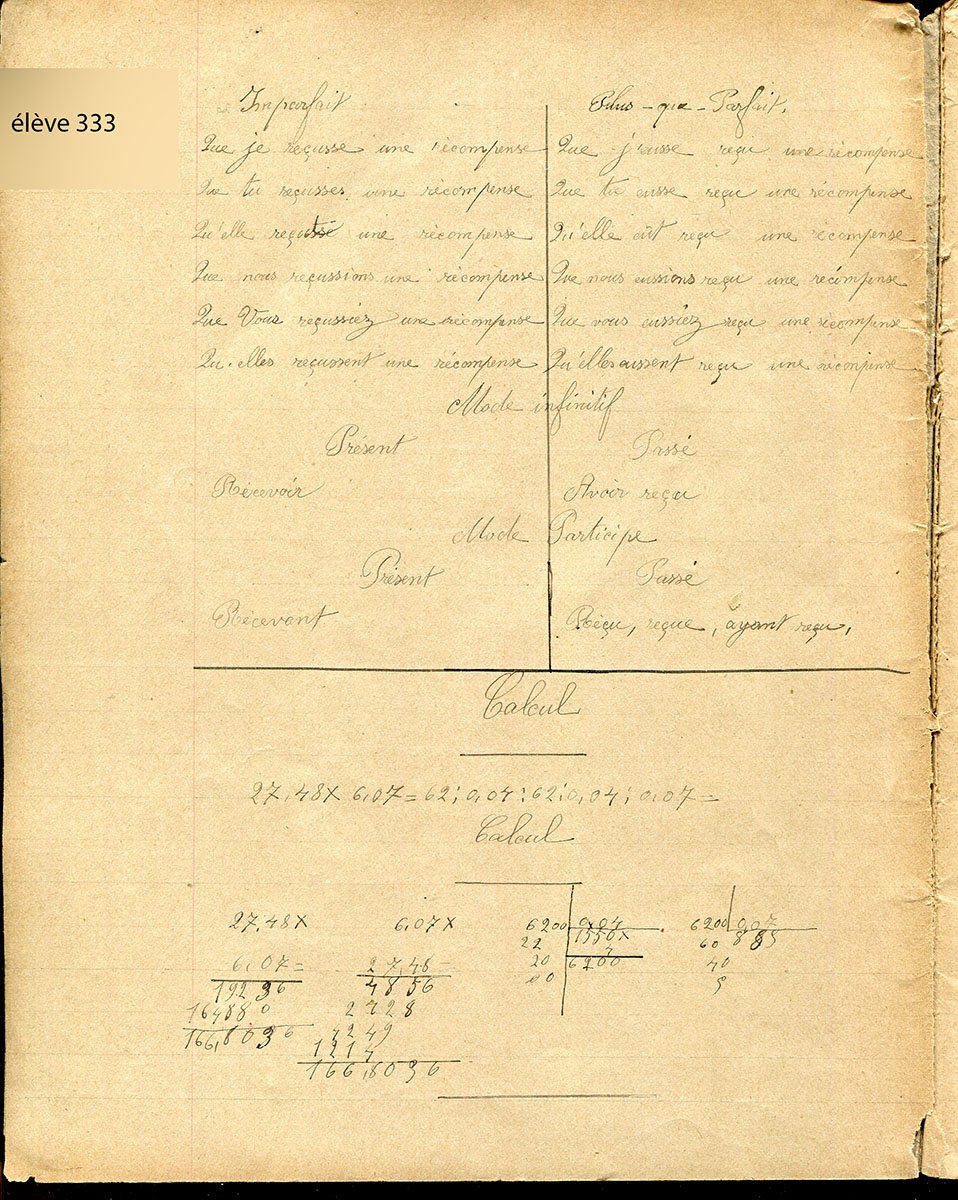 élève 333
Imparfait Plus-que-Parfait.
Que je reçusse une récompense Que j'eusse reçu une récompense
Que tu reçusses une récompense Que tu eusse reçu une récompense
Qu'elle reçut une récompense Qu'elle eût reçu une récompense
Que nous reçussions une récompense Que nous eussions reçu une récompense
Que Vous reçussiez une récompense Que vous eussiez reçu une récompense
Qu'elles reçussent une récompense Qu'elles eussent reçu une récompense
Mode infinitif
Présent Passé
Récevoir Avoir reçu
Mode Participe
Présent Passé
Récevant Réçu, reçue, ayant reçu,
Calcul
27,48 x 6,07 = 62 : 0,04 : 62 : 0,04 : 0,07 =
Calcul
27,48 x 6,07 x 6200 0,04 6200 0,07
22 1550 x 60 885
6,07 = 27,48 = 20 4 40
19236 4856 00 6200 5
164880 2428
166,8036 4249
1214
166,8036